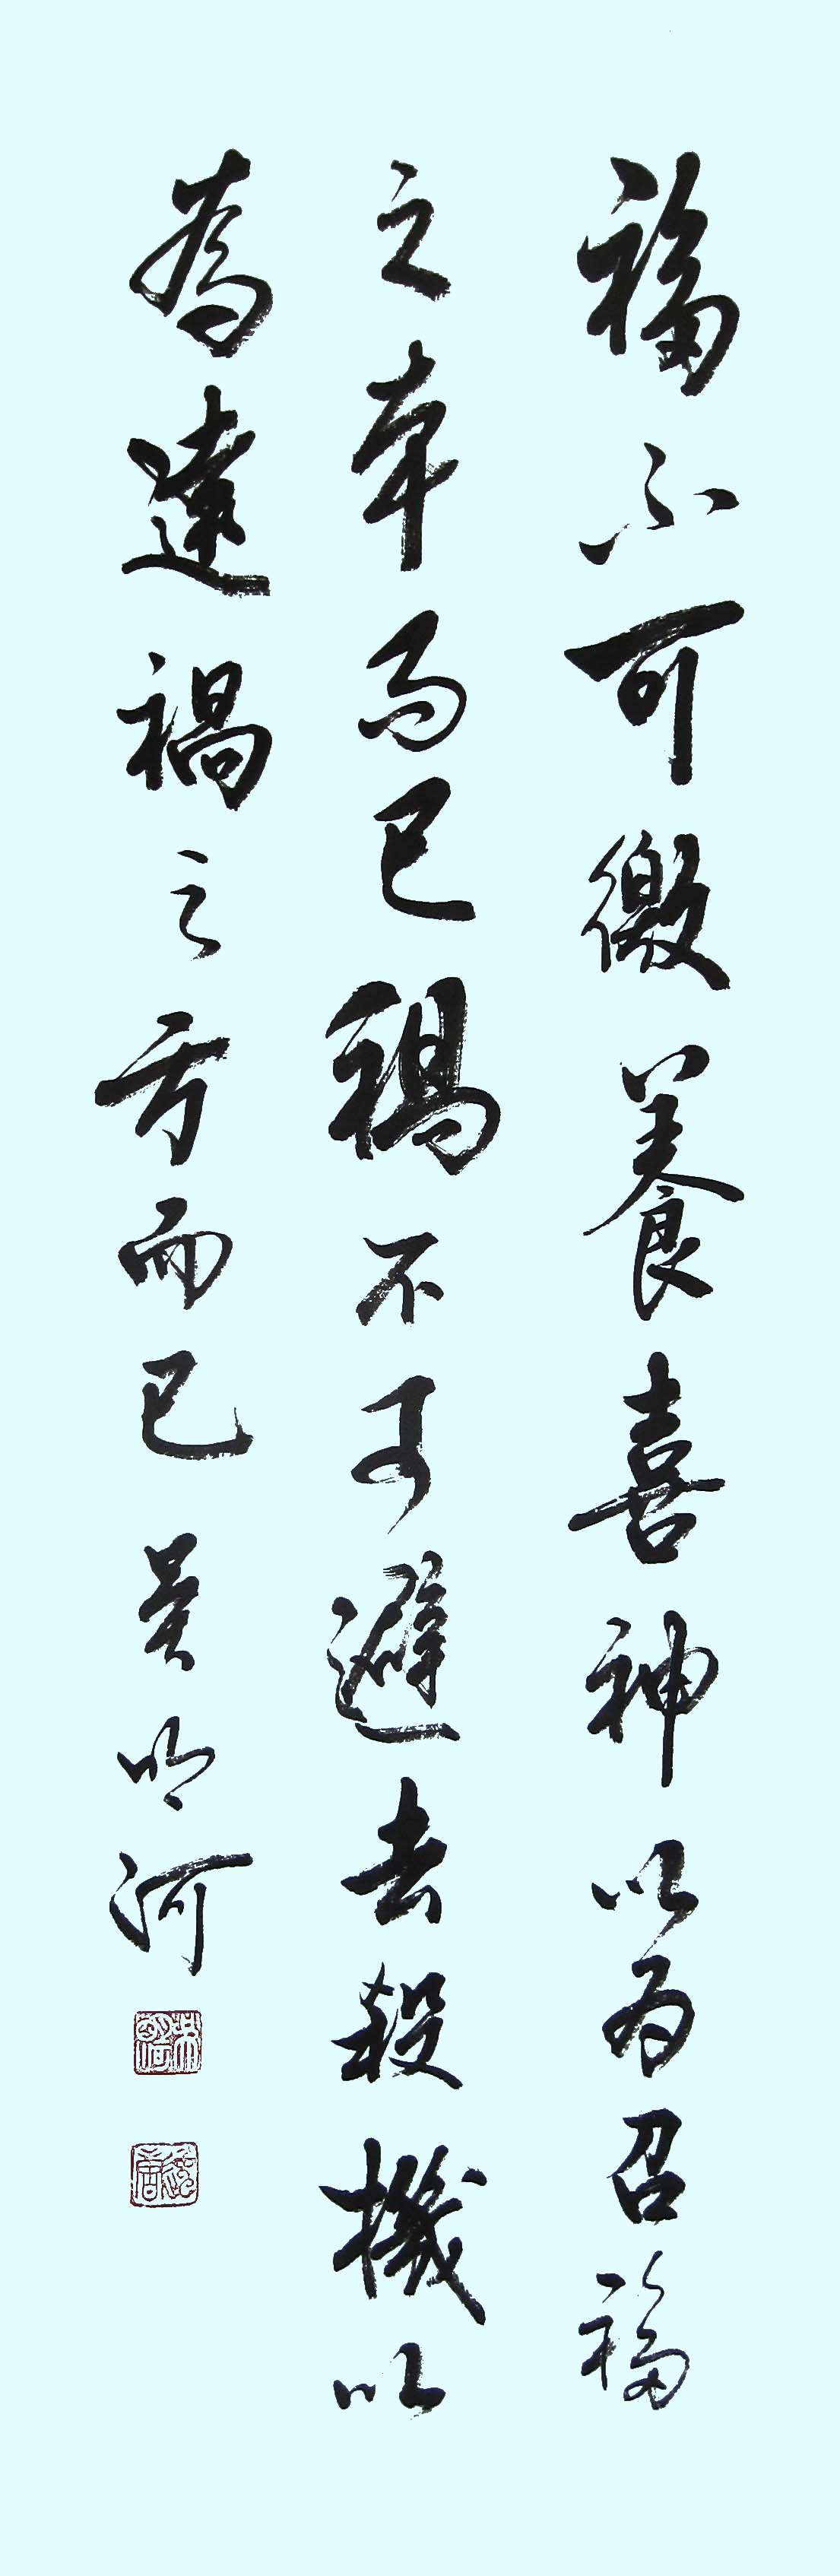 福不可徼養喜神以为召福
之本而已禍不可避去殺機以
為遠禍之方而已吴明河